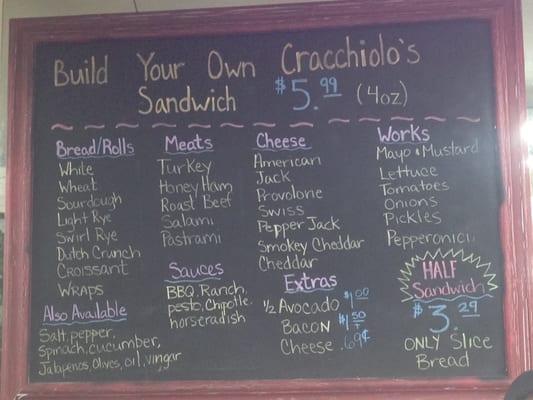 Build Your Own Cracchiolo's
Sandwich $5.99 (4oz)
Bread/Rolls
White
Wheat
Sourdough
Light Rye
Swirl Rye
Dutch Crunch
Croissant
Wraps
Also Available
Salt, pepper,
Spinach, cucumber,
Jalapenos, Olives, oil, vingar
Meats
Turkey
Honey Ham
Roast Beef
Salami
Pastrami
Sauces
BBQ, Ranch,
pesto, Chipotle,
horseradish
Cheese
American
Jack
Provolone
Swiss
Pepper Jack
Smokey Cheddar
Cheddar
Extras
½ Avocado $1.00
Bacon $1.50+
Cheese .69¢
Works
Mayo & Mustard
Lettuce
Tomatoes
Onions
Pickles
Pepperonici
HALF
Sandwich
$3.29
ONLY Slice
Bread